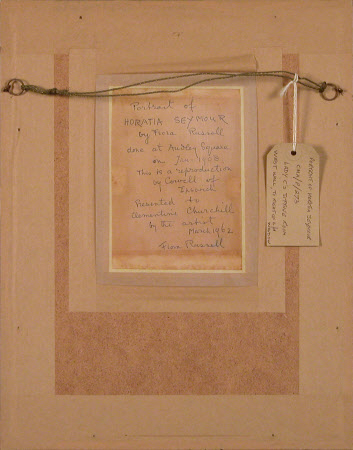 Portrait of
HORATIA SEYMOUR
by Flora Russell
done at Audley Square
on Jan. 1908
This is a reproduction
by Cowell of
Ipswich
Presented to
Clementine Churchill
by the artist
March 1962
Flora Russell
PORTRAIT OF HORATIA SEYMOUR
LADY C'S
ROOM
WEST WALL, TO RIGHT OF